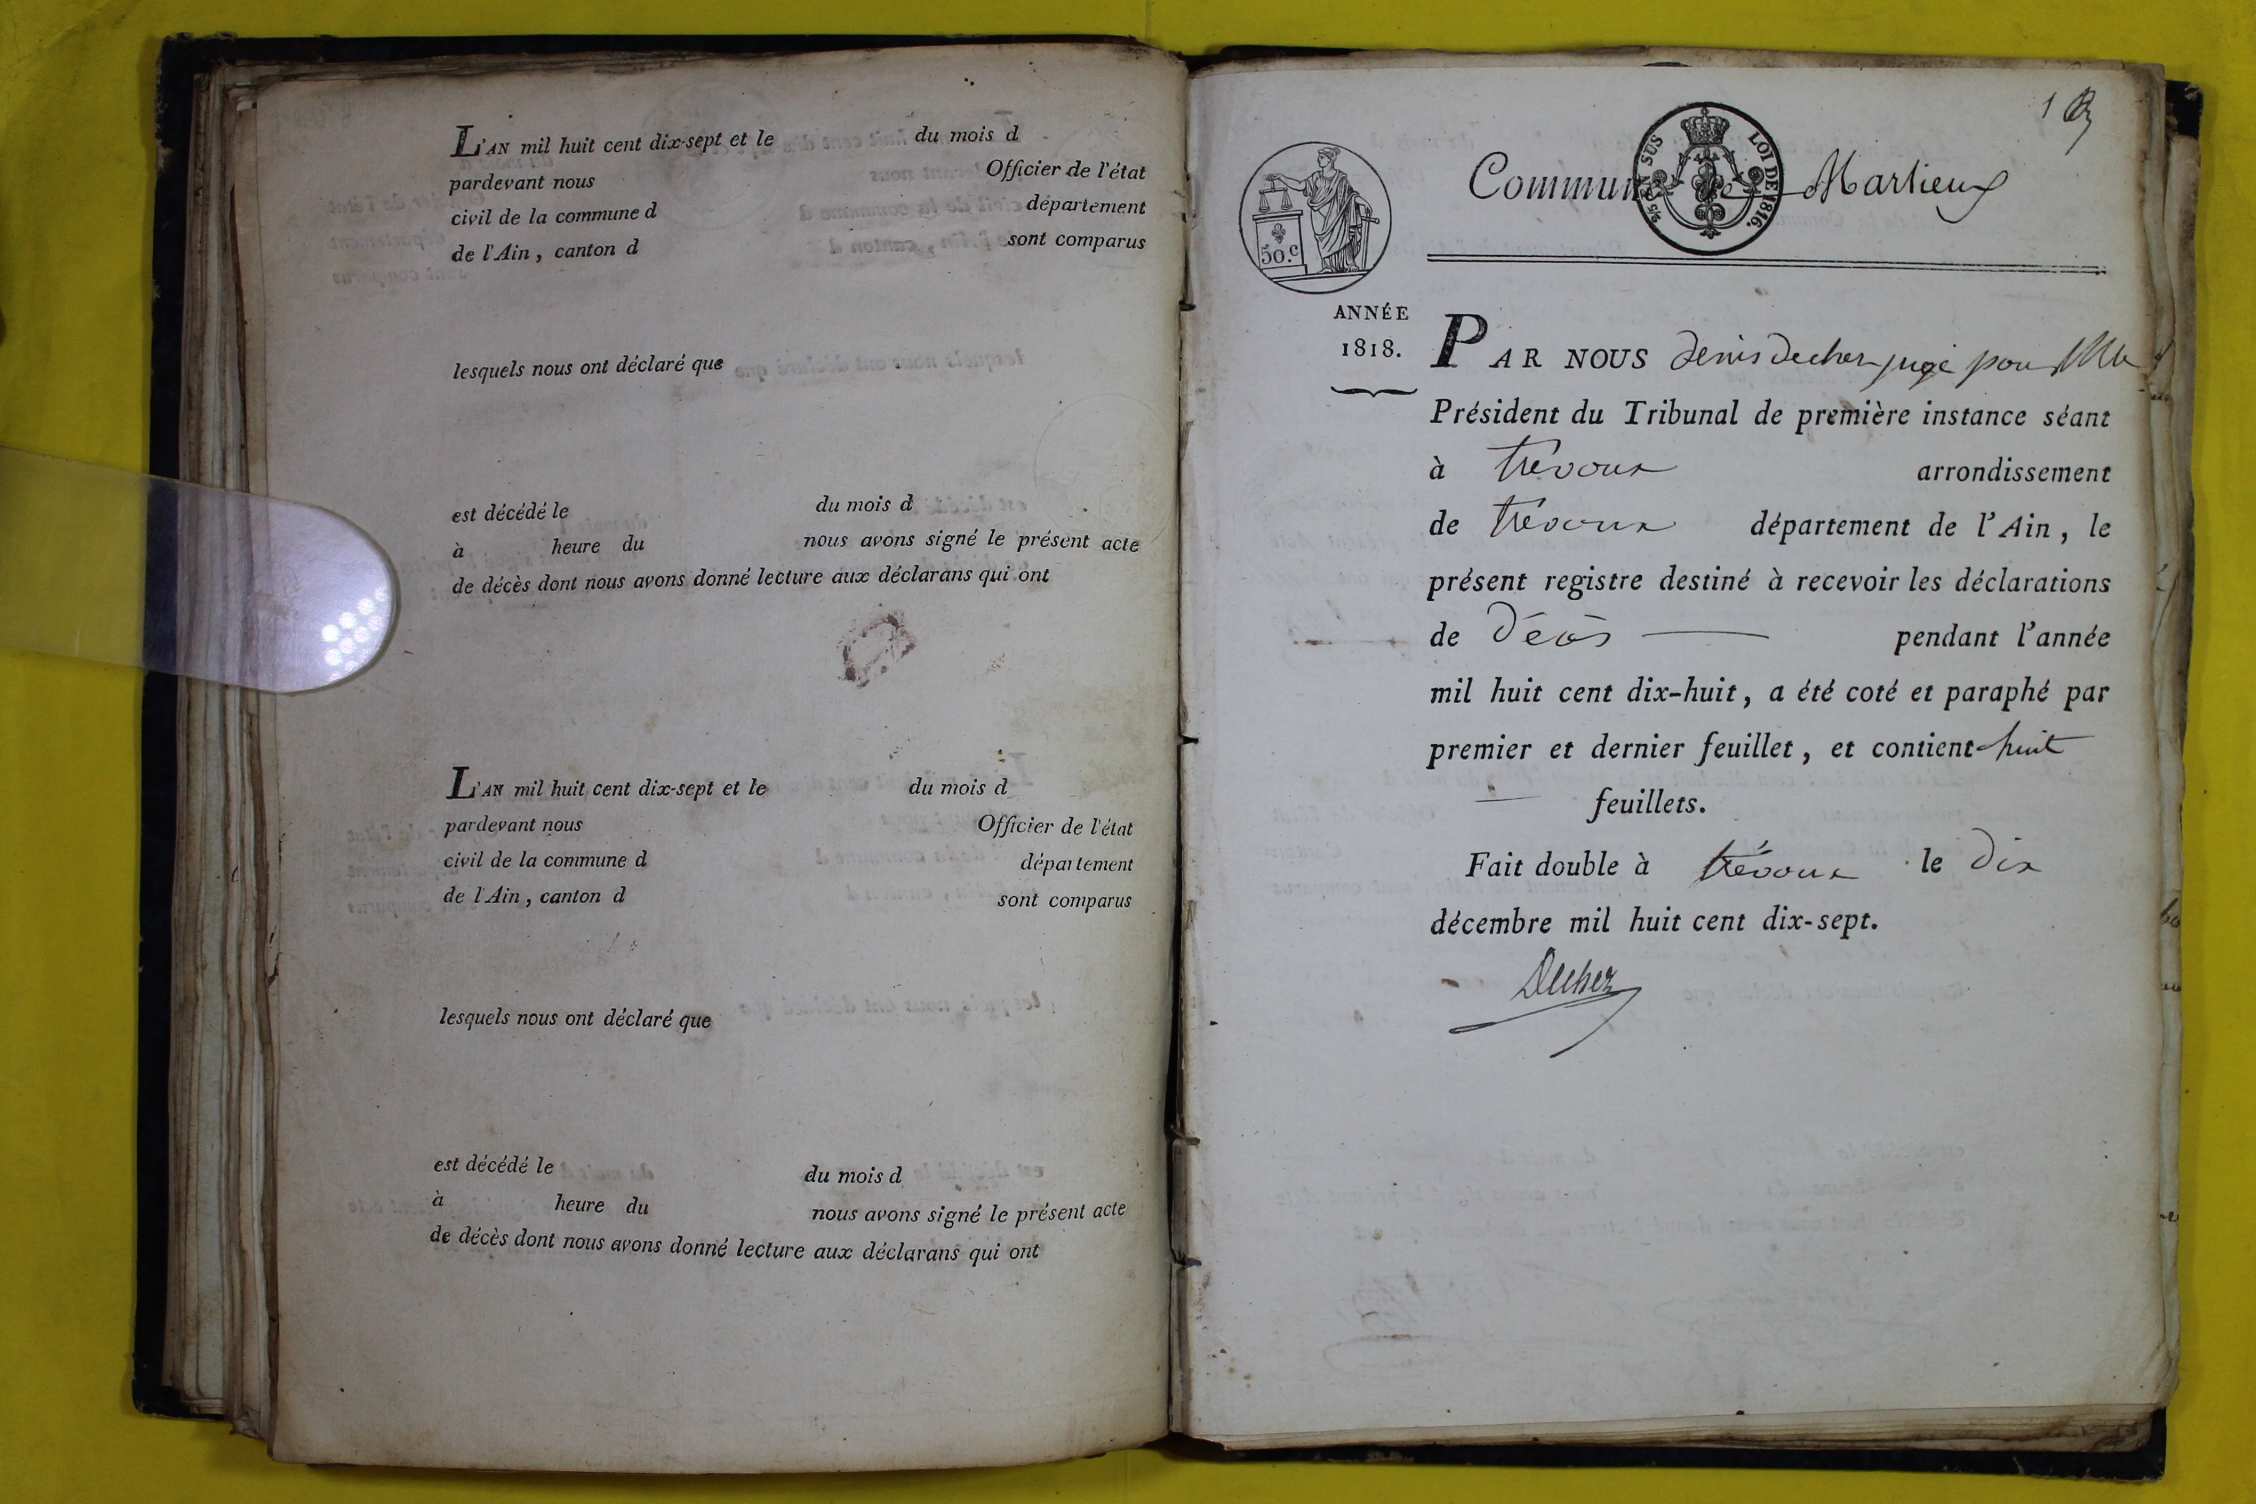 L'AN mil huit cent dix-sept et le du mois d
pardevant nous Officier de l'état
civil de la commune d département
de l'Ain, canton d sont comparus
lesquels nous ont déclaré que
est décédé le du mois d
à heure du nous avons signé le présent acte
de décès dont nous avons donné lecture aux déclarans qui ont
L'AN mil huit cent dix-sept et le du mois d
pardevant nous Officier de l'état
civil de la commune d département
de l'Ain, canton d sont comparus
lesquels nous ont déclaré que
est décédé le du mois d
à heure du nous avons signé le présent acte
de décès dont nous avons donné lecture aux déclarans qui ont
1
EN SUS LOI DE 1816.
50.c
Commune de Marlieux
ANNÉE
1818.
PAR NOUS denis decher juge pour
Président du Tribunal de première instance séant
à trévoux arrondissement
de trévoux département de l'Ain, le
présent registre destiné à recevoir les déclarations
de décès pendant l'année
mil huit cent dix-huit, a été coté et paraphé par
premier et dernier feuillet, et contient huit
feuillets.
Fait double à trévoux le dix
décembre mil huit cent dix-sept.